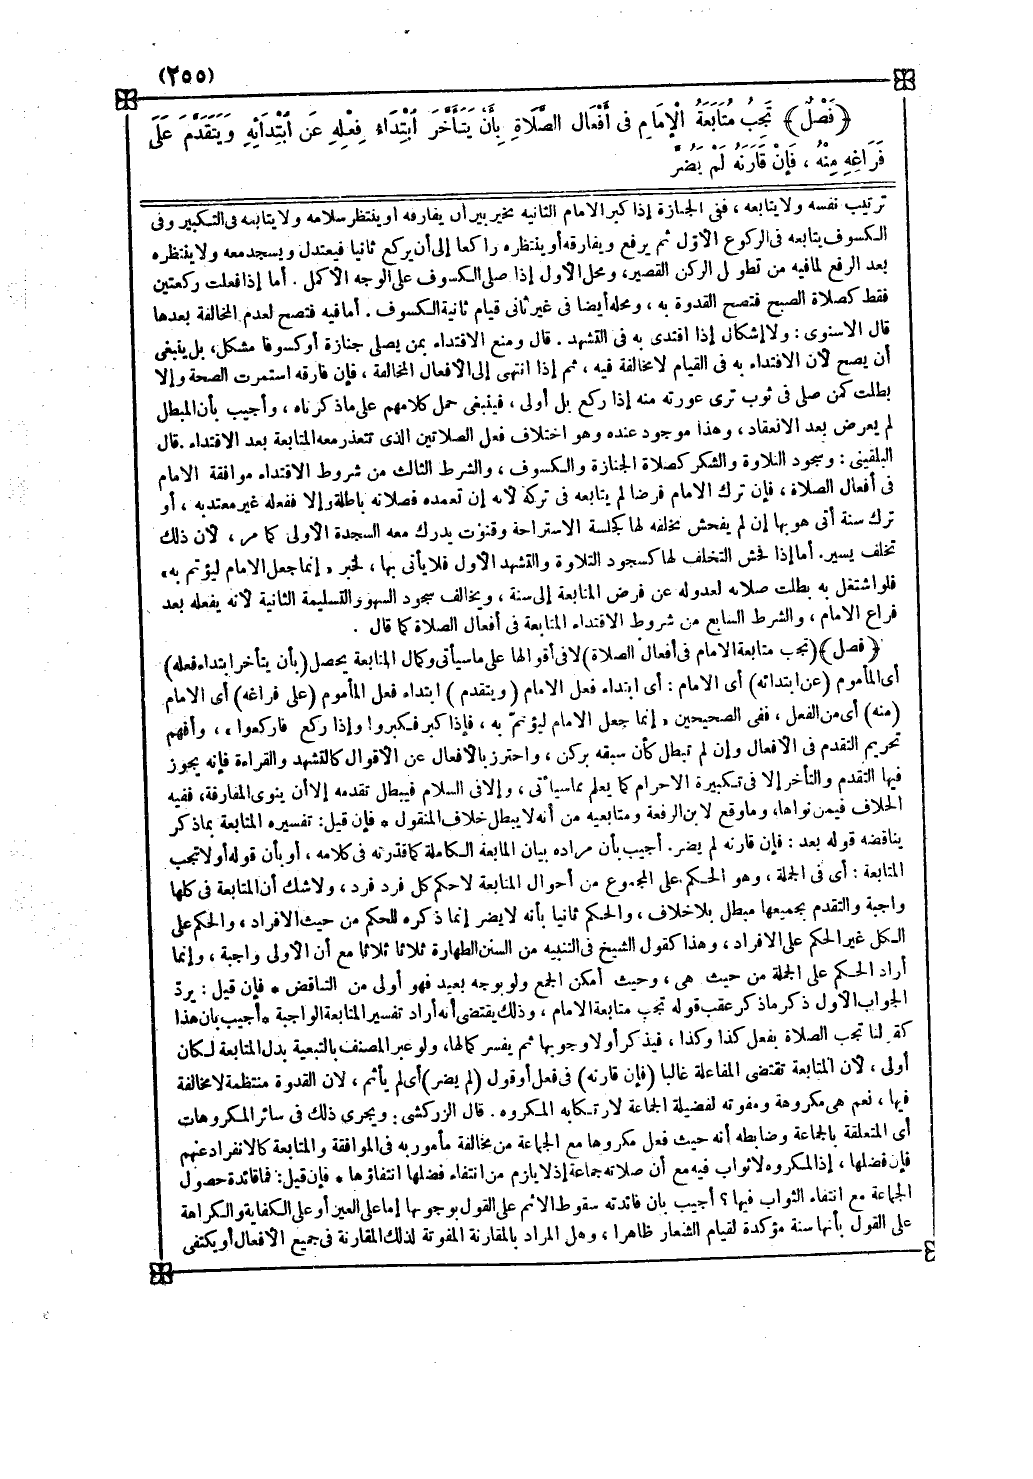 (٢٥٥)
﴿فَصْلٌ﴾ تَجِبُ مُتَابَعَةُ الْإِمَامِ فى أَفْعَالِ الصَّلَاةِ بِأَنْ يَتَأَخَّرَ ابْتِدَاءُ فِعْلِهِ عَنِ ابْتِدَائِهِ وَيَتَقَدَّمَ عَلَى
فَرَاغِهِ مِنْهُ ، فَإِنْ قَارَنَهُ لَمْ يَضُرَّ
ترتيب نفسه ولايتابعه ، ففى الجنازة إذا كبر الامام الثانية تخير بين أن يفارقه أو ينتظر سلامه ولا يتابعه فى التكبير وفى
الكسوف يتابعه فى الركوع الأوّل ثم يرفع ويفارقه أو ينتظره راكعا إلى أن يركع ثانيا فيعتدل ويسجد معه ولا ينتظره
بعد الرفع لمافيه من تطويل الركن القصير، ومحل الأول إذا صلى الكسوف على الوجه الأكمل . أما إذا فعلت ركعتين
فقط كصلاة الصبح فتصح القدوة به ، ومحله أيضا فى غير ثانى قيام ثانية الكسوف . أما فيه فتصح لعدم المخالفة بعدها
قال الاسنوى : ولا إشكال إذا اقتدى به فى التشهد . قال ومنع الاقتداء بمن يصلى جنازة أو كسوفا مشكل، بل ينبغى
أن يصح لأن الاقتداء به فى القيام لا مخالفة فيه ، ثم إذا انتهى إلى الأفعال المخالفة ، فإن فارقه استمرت الصحة وإلا
بطلت كمن صلى فى ثوب ترى عورته منه إذا ركع بل أولى ، فينبغى حمل كلامهم على ماذكرناه ، وأجيب بأن المبطل
لم يعرض بعد الانعقاد ، وهذا موجود عنده وهو اختلاف فعل الصلاتين الذى تتعذر معه المتابعة بعد الاقتداء .قال
البلقينى : وسجود التلاوة والشكر كصلاة الجنازة والكسوف ، والشرط الثالث من شروط الاقتداء موافقة الامام
فى أفعال الصلاة ، فإن ترك الامام فرضا لم يتابعه فى تركه لأنه إن تعمده فصلاته باطلة وإلا ففعله غير معتد به ، أو
ترك سنة أتى هو بها إن لم يفحش تخلفه لها كجلسة الاستراحة وقنوت يدرك معه السجدة الأولى كما مر ، لأن ذلك
تخلف يسير. أما إذا فحش التخلف لها كسجود التلاوة والتشهد الأول فلا يأتى بها ، لخبر « إنما جعل الامام ليؤتم به »
فلو اشتغل به بطلت صلاته لعدوله عن فرض المتابعة إلى سنة ، ويخالف سجود السهو والتسليمة الثانية لأنه يفعله بعد
فراغ الامام ، والشرط السابع من شروط الاقتداء المتابعة فى أفعال الصلاة كما قال .
﴿فصل﴾ (تجب متابعة الامام فى أفعال الصلاة) لا فى أقوالها على ماسيأتى وكمال المتابعة يحصل (بأن يتأخر ابتداء فعله)
أى المأموم (عن ابتدائه) أى الامام : أى ابتداء فعل الامام (ويتقدم) ابتداء فعل المأموم (على فراغه) أى الامام
(منه) أى من الفعل ، ففى الصحيحين « إنما جعل الامام ليؤتمّ به ، فإذا كبر فكبروا وإذا ركع فاركعوا » ، وأفهم
تحريم التقدم فى الأفعال وإن لم تبطل كأن سبقه بركن ، واحترز بالأفعال عن الأقوال كالتشهد والقراءة فإنه يجوز
فيها التقدم والتأخر إلا فى تكبيرة الاحرام كما يعلم مماسيأتى ، وإلا فى السلام فيبطل تقدمه إلا أن ينوى المفارقة، ففيه
الخلاف فيمن نواها، وماوقع لابن الرفعة ومتابعيه من أنه لا يبطل خلاف المنقول * فإن قيل: تفسيره المتابعة بماذكر
يناقضه قوله بعد : فإن قارنه لم يضر. أجيب بأن مراده بيان المتابعة الكاملة كماقدرته فى كلامه ، أو بأن قوله أولا تجب
المتابعة : أى فى الجملة ، وهو الحكم على المجموع من أحوال المتابعة لا حكم كل فرد فرد ، ولا شك أن المتابعة فى كلها
واجبة والتقدم بجميعها مبطل بلاخلاف ، والحكم ثانيا بأنه لا يضر إنما ذكره للحكم من حيث الافراد ، والحكم على
الكل غير الحكم على الافراد ، وهذا كقول الشيخ فى التنبيه من السنن الطهارة ثلاثا ثلاثا مع أن الأولى واجبة ، وإنما
أراد الحكم على الجملة من حيث هى ، وحيث أمكن الجمع ولو بوجه بعيد فهو أولى من التناقض * فإن قيل : يردّ
الجواب الأول ذكر ماذكر عقب قوله تجب متابعة الامام ، وذلك يقتضى أنه أراد تفسير المتابعة الواجبة * أجيب بأن هذا
كقولنا تجب الصلاة بفعل كذا وكذا ، فيذكر أولا وجوبها ثم يفسر كمالها، ولو عبر المصنف بالتبعية بدل المتابعة لكان
أولى ، لأن المتابعة تقتضى المفاعلة غالبا (فإن قارنه) فى فعل أو قول (لم يضر) أى لم يأثم ، لان القدوة منتظمة لا مخالفة
فيها ، نعم هى مكروهة ومفوته لفضيلة الجماعة لارتكابه المكروه . قال الزركشى : ويجرى ذلك فى سائر المكروهات
أى المتعلقة بالجماعة وضابطه أنه حيث فعل مكروها مع الجماعة من مخالفة مأمور به فى الموافقة والمتابعة كالانفراد عنهم
فإن فضلها ، إذ المكروه لا ثواب فيه مع أن صلاته جماعة إذ لا يلزم من انتفاء فضلها انتفاؤها * فإن قيل: فمافائدة حصول
الجماعة مع انتفاء الثواب فيها ؟ أجيب بان فائدته سقوط الاثم على القول بوجوبها إما على العين أو على الكفاية والكراهة
على القول بأنها سنة مؤكدة لقيام الشعار ظاهرا ، وهل المراد بالمقارنة المفوتة لذلك المقارنة فى جميع الأفعال أو يكتفى